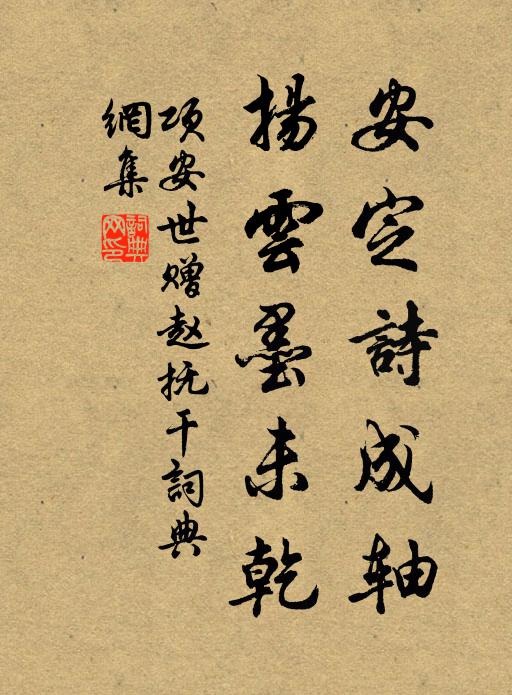 安定詩成軸
揚雲墨未乾
项安世赠赵抚干詞典
網集
詞典網印